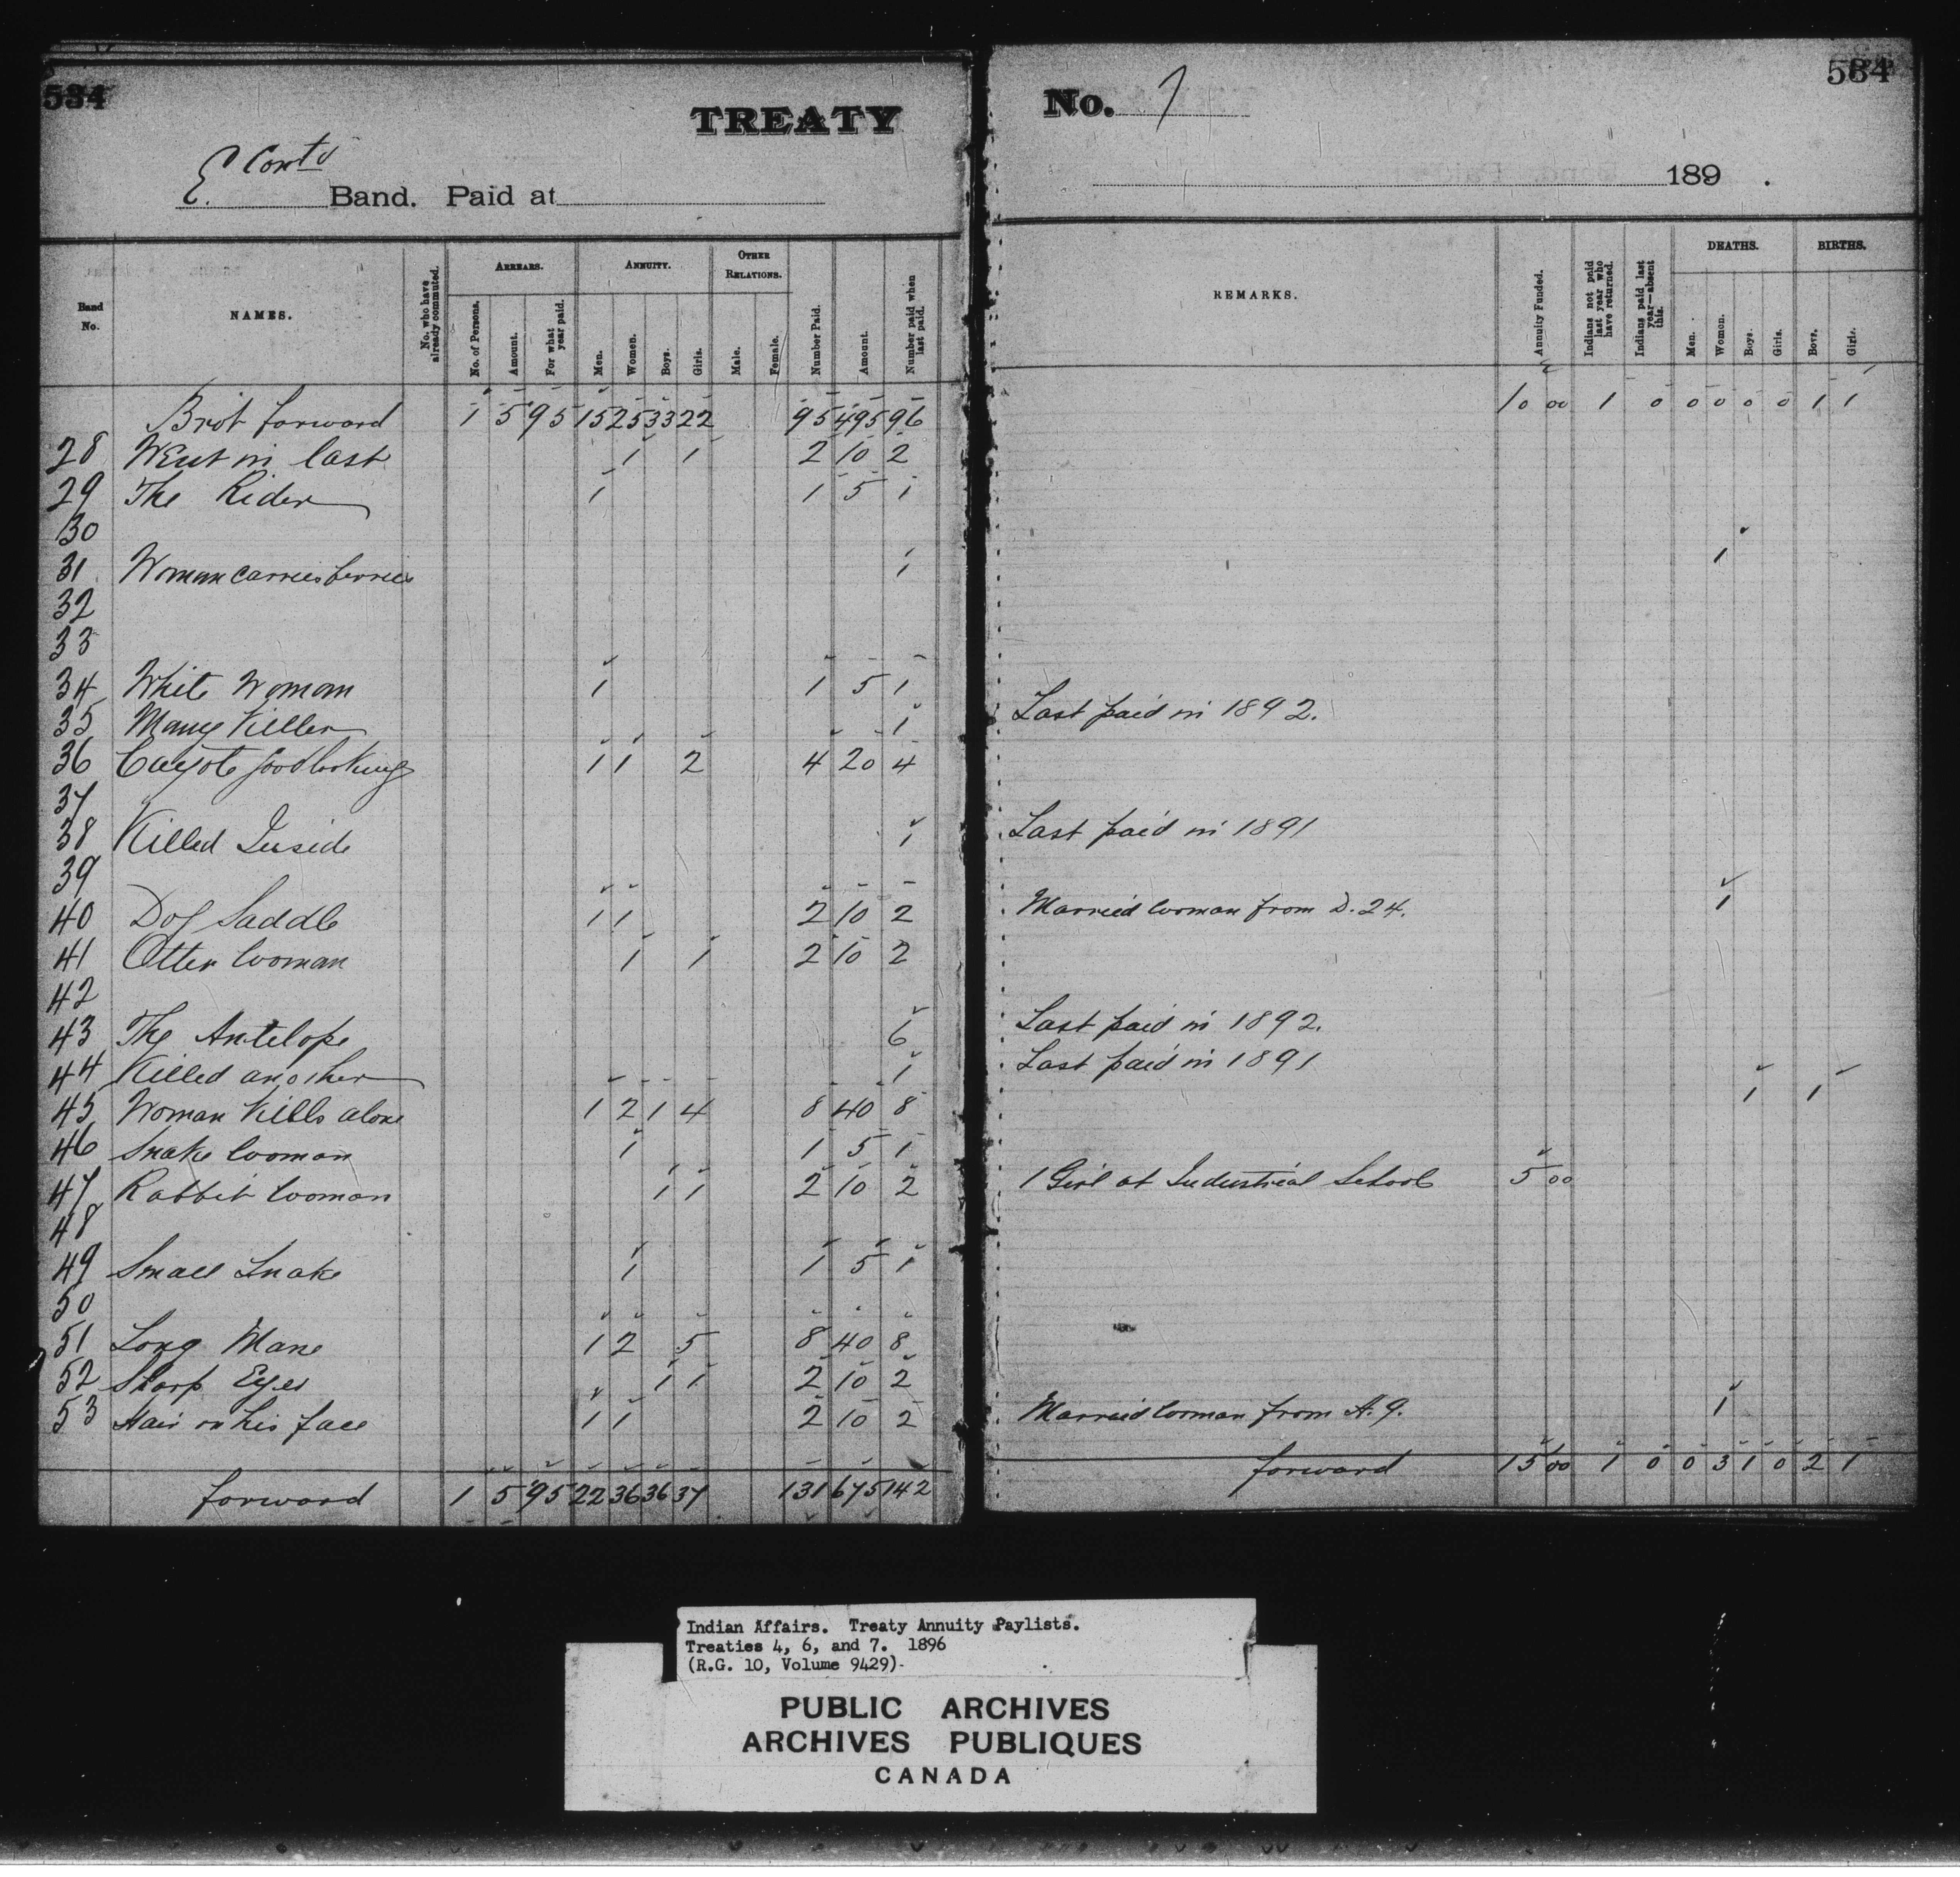 534
TREATY
E Contd
Band. Paid at
No. 7
534
189 .
Band No.
NAMES.
No. who have already commuted.
ARREARS.
No. of Persons.
Amount.
For what year paid.
ANNUITY.
Men.
Women.
Boys.
Girls.
OTHER RELATIONS.
Male.
Female.
Number Paid.
Amount.
Number paid when last paid.
REMARKS.
Annuity Funded.
Indians not paid last year who have returned.
Indians paid last year—absent this.
DEATHS.
Men.
Women.
Boys.
Girls.
BIRTHS.
Boys.
Girls.
Brot forward 1 5 95 15 25 33 22 95 495 96 10 00 1 0 0 0 0 0 1 1
28 Went in last 1 1 2 10 2
29 The Rider 1 1 5 1
30
31 Woman carries berries 1 1
32
33
34 White Woman 1 1 5 1
35 Many Killer 1 Last paid in 1892.
36 Cayote good looking 1 1 2 4 20 4
37
38 Killed Inside 1 Last paid in 1891
39
40 Dog Saddle 1 1 2 10 2 Married woman from D. 24. 1
41 Otter Woman 1 1 2 10 2
42
43 The Antelope 6 Last paid in 1892.
44 Killed another 1 Last paid in 1891
45 Woman Kills alone 1 2 1 4 8 40 8 1 1
46 Snake woman 1 1 5 1
47 Rabbit woman 1 1 2 10 2 1 Girl at Industrial School 5 00
48
49 Small Snake 1 1 5 1
50
51 Long Mane 1 2 5 8 40 8
52 Sharp Eyes 1 1 2 10 2
53 Hair on his face 1 1 2 10 2 Married woman from A. 9. 1
forward 1 5 95 22 36 36 37 131 675 142 forward 15 00 1 0 0 3 1 0 2 1
Indian Affairs. Treaty Annuity Paylists.
Treaties 4, 6, and 7. 1896
(R.G. 10, Volume 9429)
PUBLIC ARCHIVES
ARCHIVES PUBLIQUES
CANADA